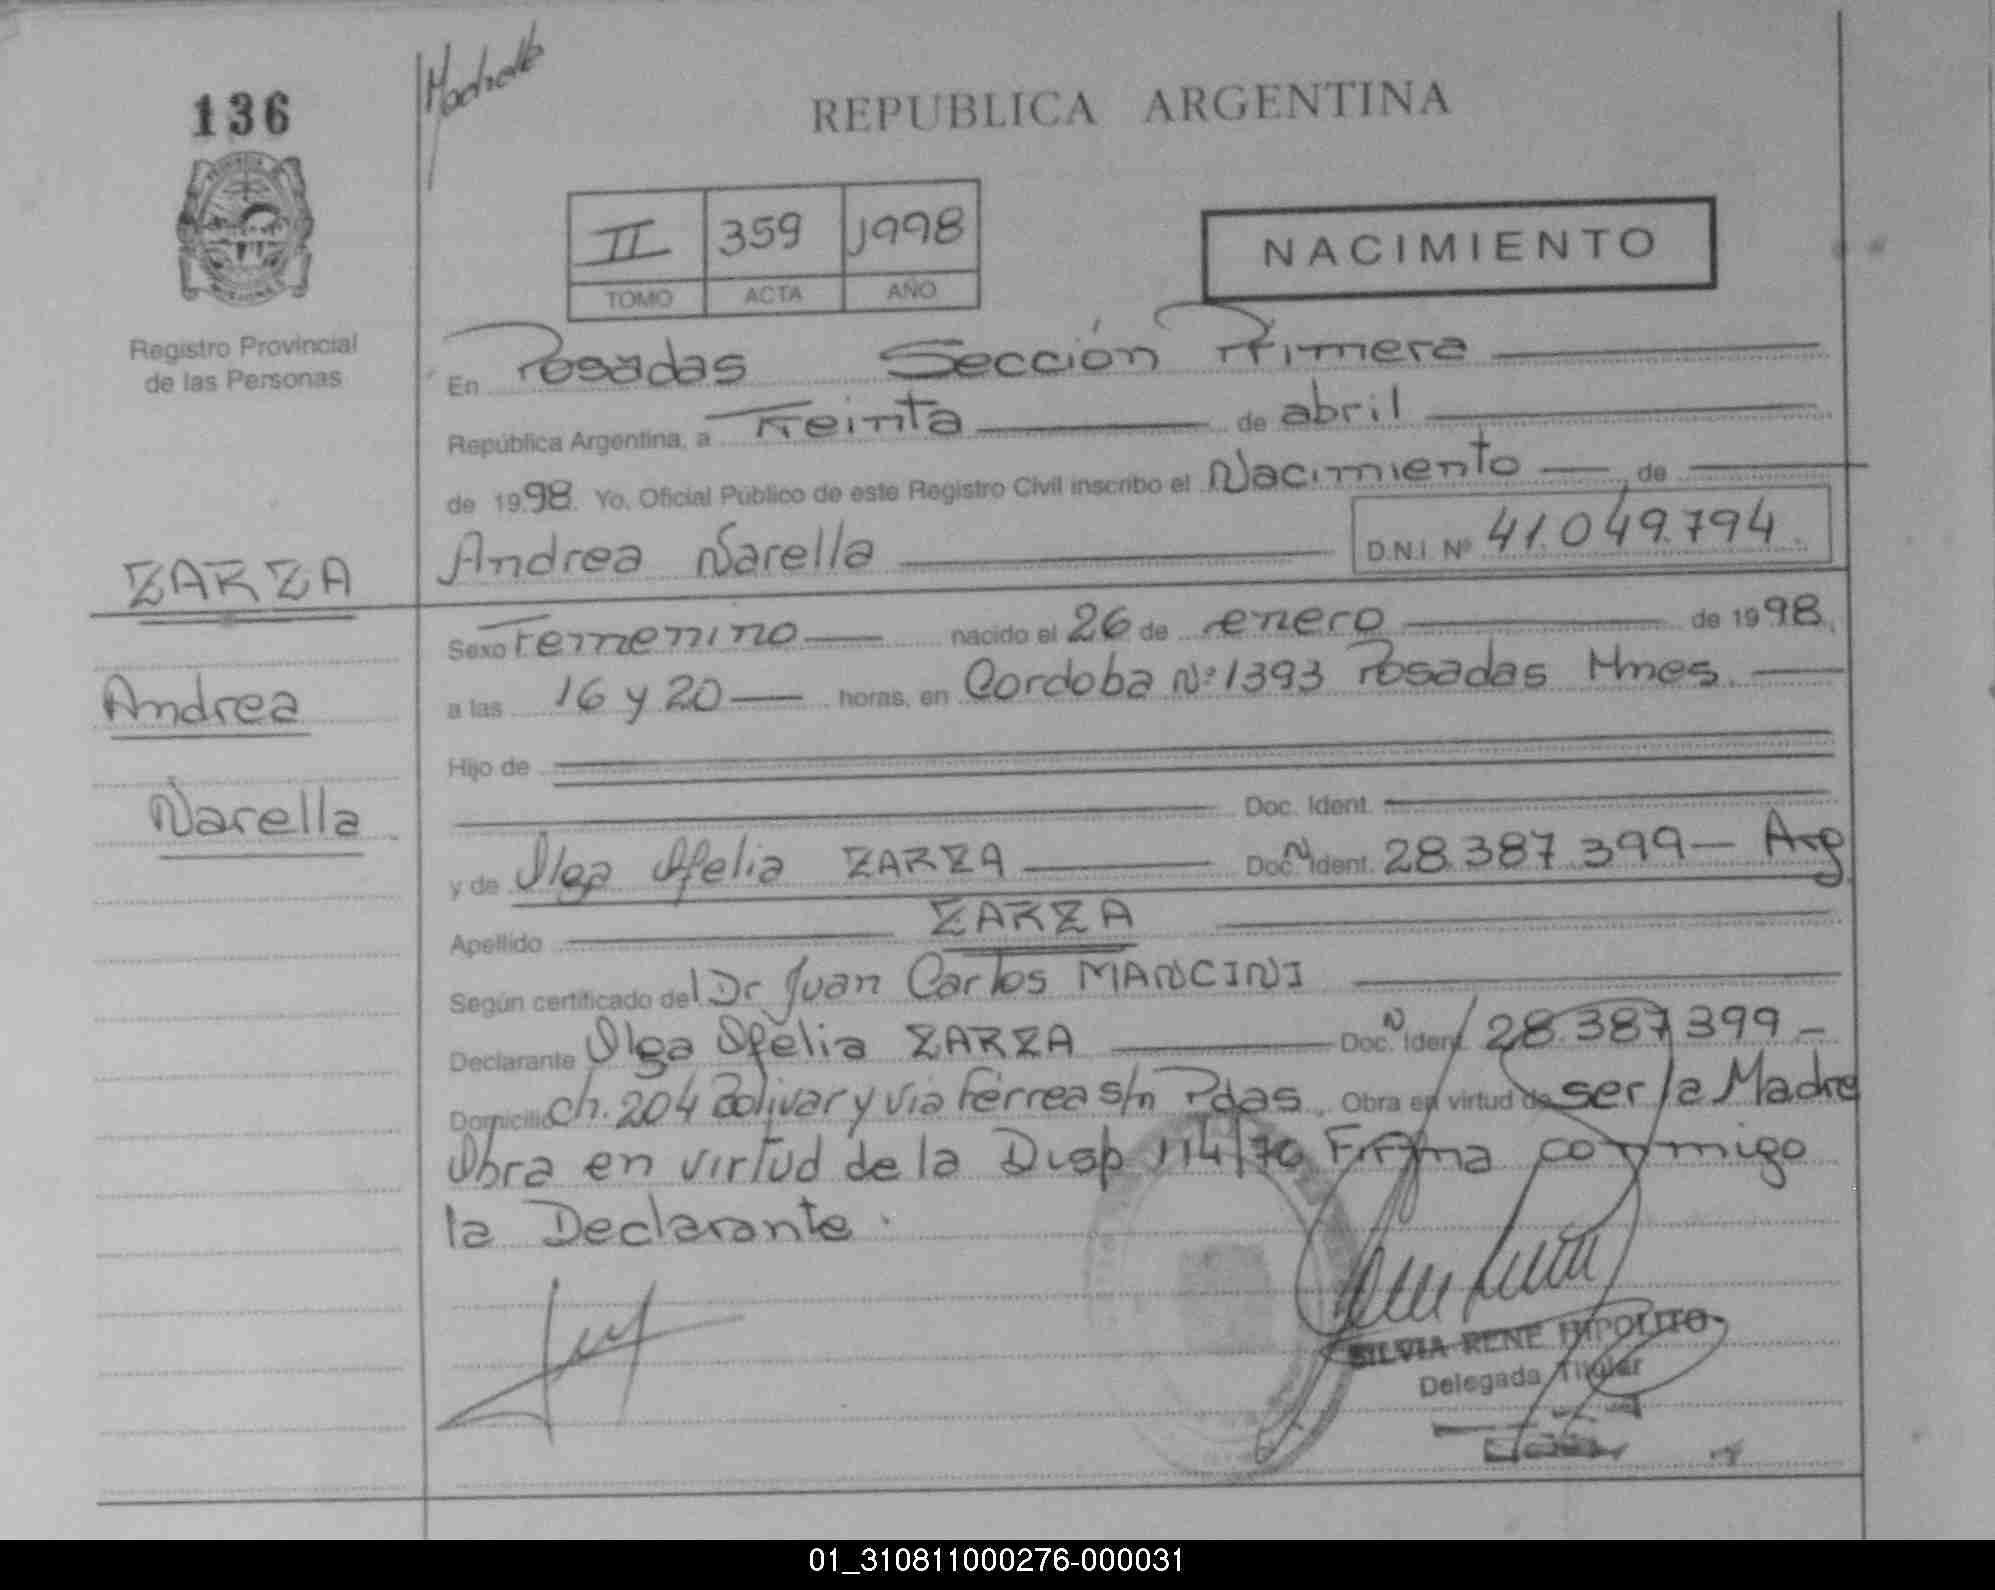 136
REPUBLICA ARGENTINA
II 359 1998
TOMO ACTA AÑO
NACIMIENTO
Registro Provincial
de las Personas
En Posadas Sección Primera
República Argentina, a Treinta de abril
de 1998. Yo, Oficial Público de este Registro Civil inscribo el Nacimiento de
Andrea Narella D.N.I. Nº 41.049.794.
ZARZA
Andrea
Narella
Sexo Femenino nacido el 26 de enero de 1998.
a las 16 y 20 horas, en Cordoba Nº 1393 Posadas Mnes.
Hijo de
Doc. Ident.
y de Olga Ofelia ZARZA Doc. N Ident. 28.387.399 - Arg
Apellido ZARZA
Según certificado del Dr Juan Carlos MANCINI
Declarante Olga Ofelia ZARZA Doc. N Ident. 28.387.399 -
Domicilio Ch. 204 Bolivar y via Ferrea s/n Pdas. Obra en virtud de ser la Madre
Obra en virtud de la Disp 114/70 Firma conmigo
la Declarante.
SILVIA RENE HIPOLITO
Delegada Titular
01_310811000276-000031